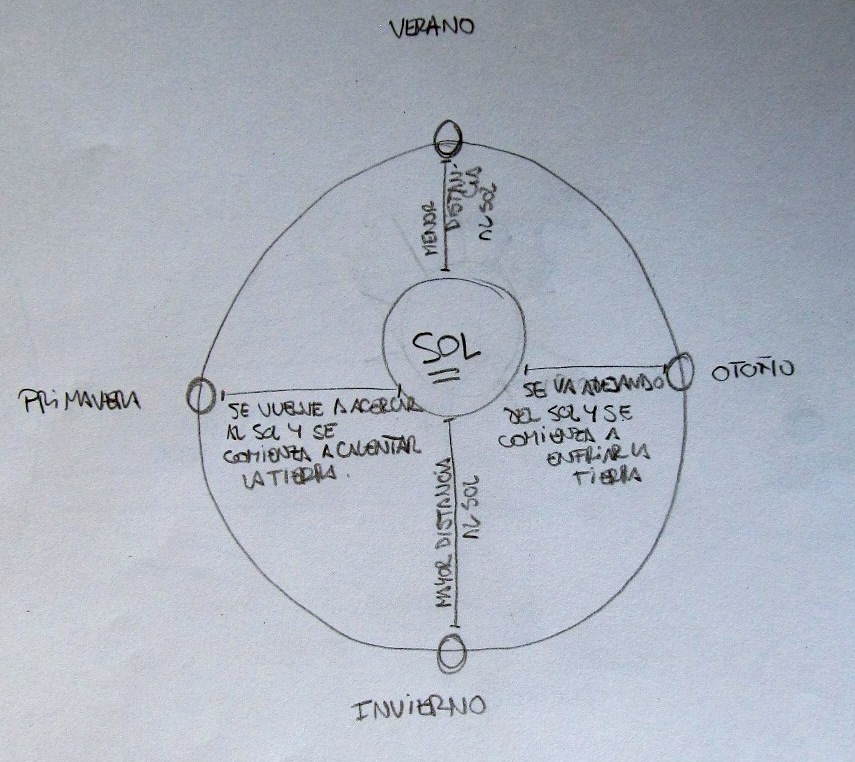 VERANO
MENOR
DISTAN
CIA
AL SOL
SOL
PRIMAVERA
SE VUELVE A ACERCAR
AL SOL Y SE
COMIENZA A CALENTAR
LA TIERRA.
SE VA ALEJANDO
DEL SOL Y SE
COMIENZA A
ENFRIAR LA
TIERRA
OTOÑO
MAYOR DISTANCIA
AL SOL
INVIERNO